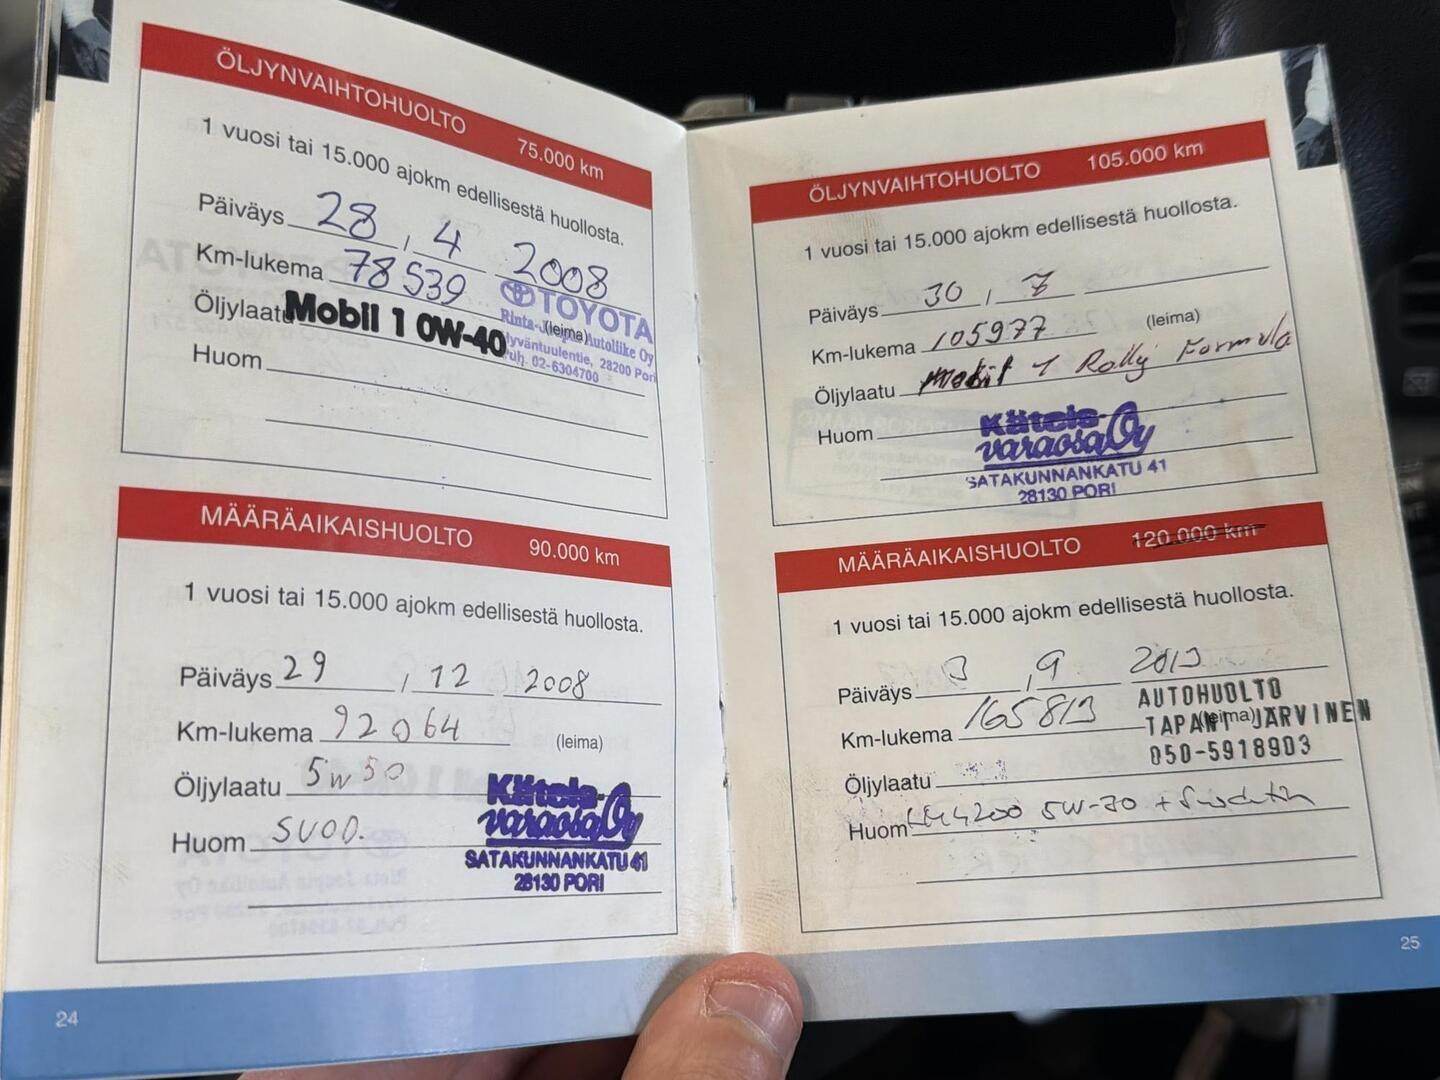 ÖLJYNVAIHTOHUOLTO 75.000 km
1 vuosi tai 15.000 ajokm edellisestä huollosta.
Päiväys 28 , 4 2008
Km-lukema 78539
TOYOTA
Öljylaatu Mobil 1 0W-40 (leima)
Rinta-Joupin Autoliike Oy
Hyväntuulentie, 28200 Pori
Puh. 02-6304700
Huom
MÄÄRÄAIKAISHUOLTO 90.000 km
1 vuosi tai 15.000 ajokm edellisestä huollosta.
Päiväys 29 , 12 2008
Km-lukema 92064 (leima)
Öljylaatu 5W50
Huom SUOD.
Kiiteis-
varaosa Oy
SATAKUNNANKATU 41
28130 PORI
24
ÖLJYNVAIHTOHUOLTO 105.000 km
1 vuosi tai 15.000 ajokm edellisestä huollosta.
Päiväys 30 , 7
Km-lukema 105977 (leima)
Öljylaatu Mobil 1 Rally Formula
Huom
varaosa Oy
SATAKUNNANKATU 41
28130 PORI
MÄÄRÄAIKAISHUOLTO 120.000 km
1 vuosi tai 15.000 ajokm edellisestä huollosta.
Päiväys 3 , 9 2013
Km-lukema 165813 (leima)
AUTOHUOLTO
TAPANI JÄRVINEN
050-5918903
Öljylaatu
Huom 5W-30 +
25